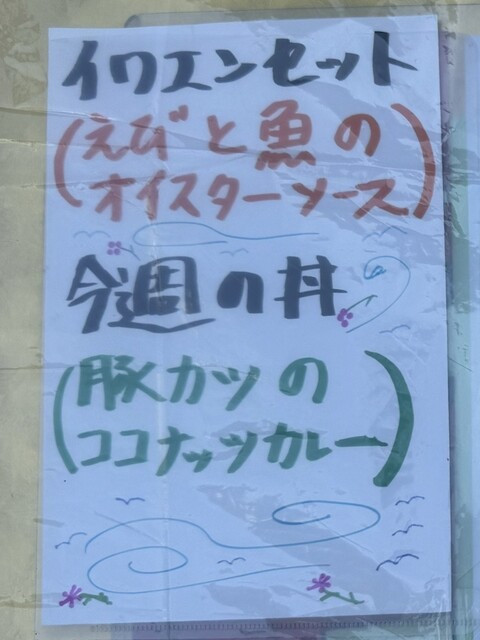 イワエンセット
(えびと魚の
オイスターソース)
今週の丼
(豚カツの
ココナッツカレー)